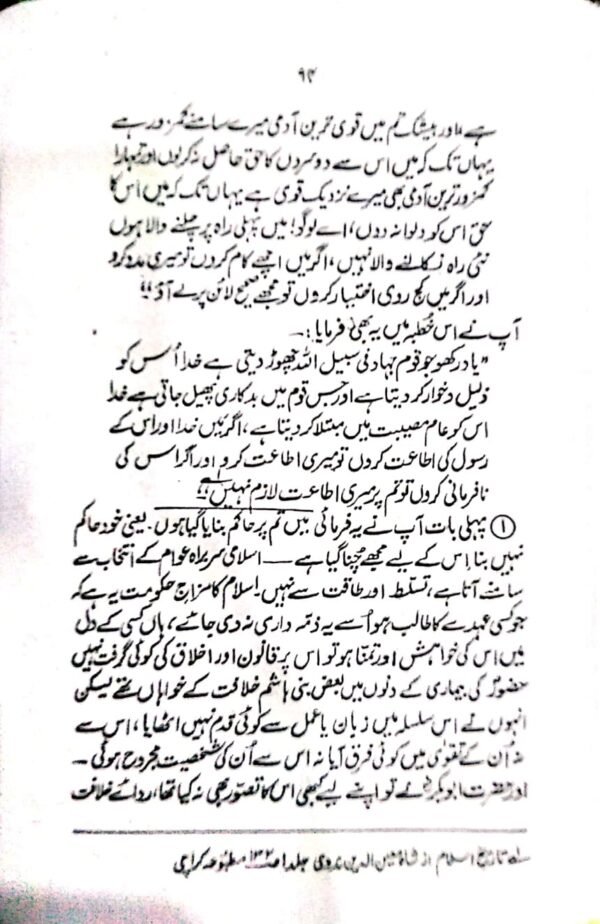 ۹۴
ہے، اور بیشک تم میں قوی ترین آدمی میرے سامنے کمزور ہے
یہاں تک کہ میں اس سے دوسروں کا حق حاصل نہ کرلوں اور تمہارا
کمزور ترین آدمی بھی میرے نزدیک قوی ہے یہاں تک کہ میں اس کا
حق اس کو دلوا نہ دوں، اے لوگو! میں پہلی راہ پر چلنے والا ہوں
نئی راہ نکالنے والا نہیں، اگر میں اچھے کام کروں تو میری مدد کرو
اور اگر میں کج روی اختیار کروں تو مجھے صحیح لائن پر لے آؤ"
آپ نے اس خطبہ میں یہ بھی فرمایا:۔
"یاد رکھو جو قوم جہاد فی سبیل اللہ چھوڑ دیتی ہے خدا اُس کو
ذلیل و خوار کر دیتا ہے اور جس قوم میں بدکاری پھیل جاتی ہے خدا
اس کو عام مصیبت میں مبتلا کر دیتا ہے، اگر میں خدا اور اس کے
رسول کی اطاعت کروں تو میری اطاعت کرو اور اگر اس کی
نافرمانی کروں تو تم پر میری اطاعت لازم نہیں ہے"
① پہلی بات آپ نے یہ فرمائی میں تم پر حاکم بنایا گیا ہوں۔ یعنی خود حاکم
نہیں بنا، اس کے لیے مجھے چنا گیا ہے — اسلامی سربراہ عوام کے انتخاب سے
سامنے آتا ہے، تسلط اور طاقت سے نہیں۔ اسلام کا مزاج حکومت یہ ہے کہ
جو کسی عہدے کا طالب ہو اُسے یہ ذمہ داری نہ دی جائے، ہاں کسی کے دل
میں اس کی خواہش اور تمنا ہو تو اس پر قانون اور اخلاق کی کوئی گرفت نہیں
حضورؐ کی بیماری کے دنوں میں بعض بنی ہاشم خلافت کے خواہاں تھے لیکن
انہوں نے اس سلسلہ میں زبان یا عمل سے کوئی قدم نہیں اٹھایا، اس سے
نہ اُن کے تقویٰ میں کوئی فرق آیا نہ اس سے اُن کی شخصیت مجروح ہوئی —
اور حضرت ابوبکرؓ نے تو اپنے لیے کبھی اس کا تصور بھی نہ کیا تھا، ردائے خلافت
تاریخ اسلام از شاہ معین الدین ندوی جلد اول ص۱۳۲ مطبوعہ کراچی